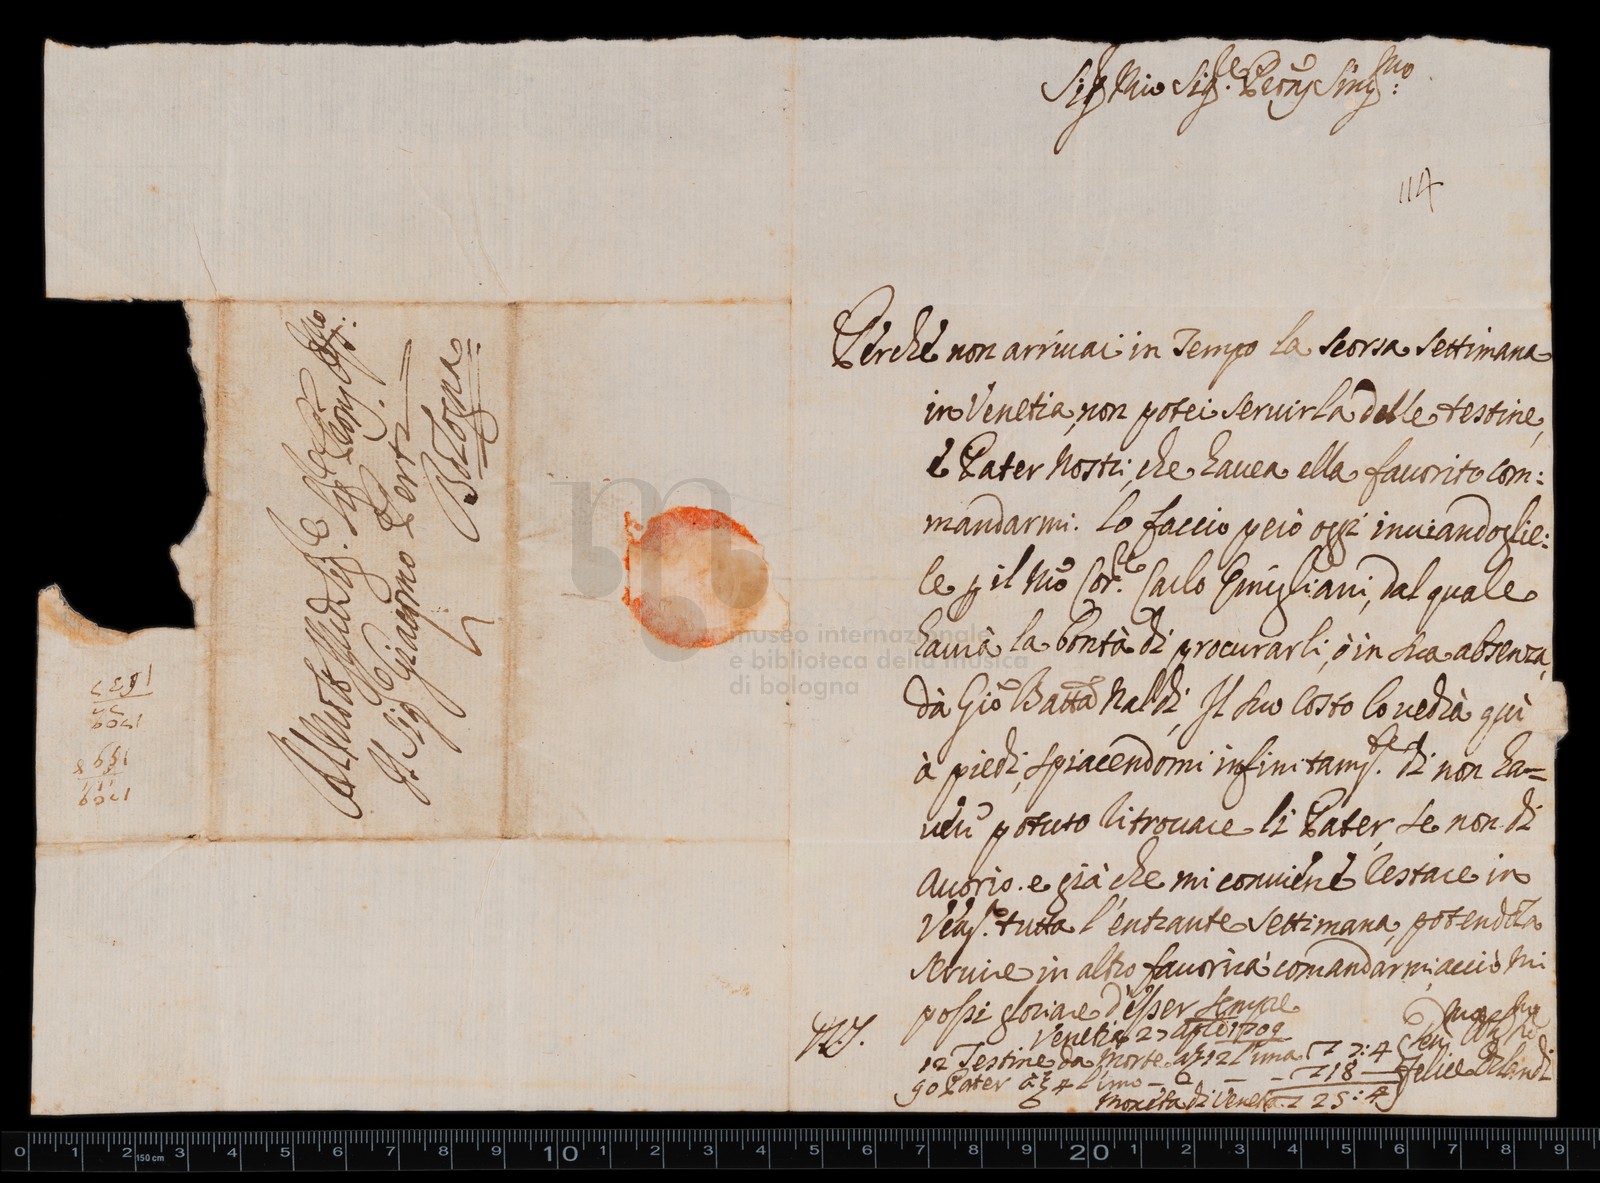 Sig.r Mio Sig.re e Pron Sing.mo
114
Perche non arriuai in Tempo la scorsa settimana
in Venetia, non potei seruirla delle testine,
è Pater Nostri, che hauea ella fauorito com:
mandarmi. Lo faccio però oggi inuiandoglie:
le p il Mio Cor.re Carlo Emigliani, dal quale
haurà la bontà di procurarli, ò in sua absenza,
da Giō Batta Naldi, Il suo Costo lo uedrà qui
à piedi, spiacendomi infinitam.te di non ha=
uer potuto ritrouare li Pater, se non di
Auorio. e già che mi conuiene restare in
Ven.a tutta l'entrante settimana, potendola
seruire in altro fauorirà comandarmi, acciò mi
possi gloriare d'esser sempre
Venetia 27 Aple 1709
12 Testine da Morte a £ 12 l'una £ 7:4
90 Pater à £ 4 l'uno — £ 18
Moneta di Veneta £ 25:4
Felice Orlandi
All Molt Ill.re Sig.re Sig.r e Pron Oss.mo
Il Sig.r Giacomo Perti
Bologna
1709
museo internazionale
e biblioteca della musica
di bologna
0 1 2 3 4 5 6 7 8 9 10 1 2 3 4 5 6 7 8 9 20 1 2 3 4 5 6 7 8 9
150 cm